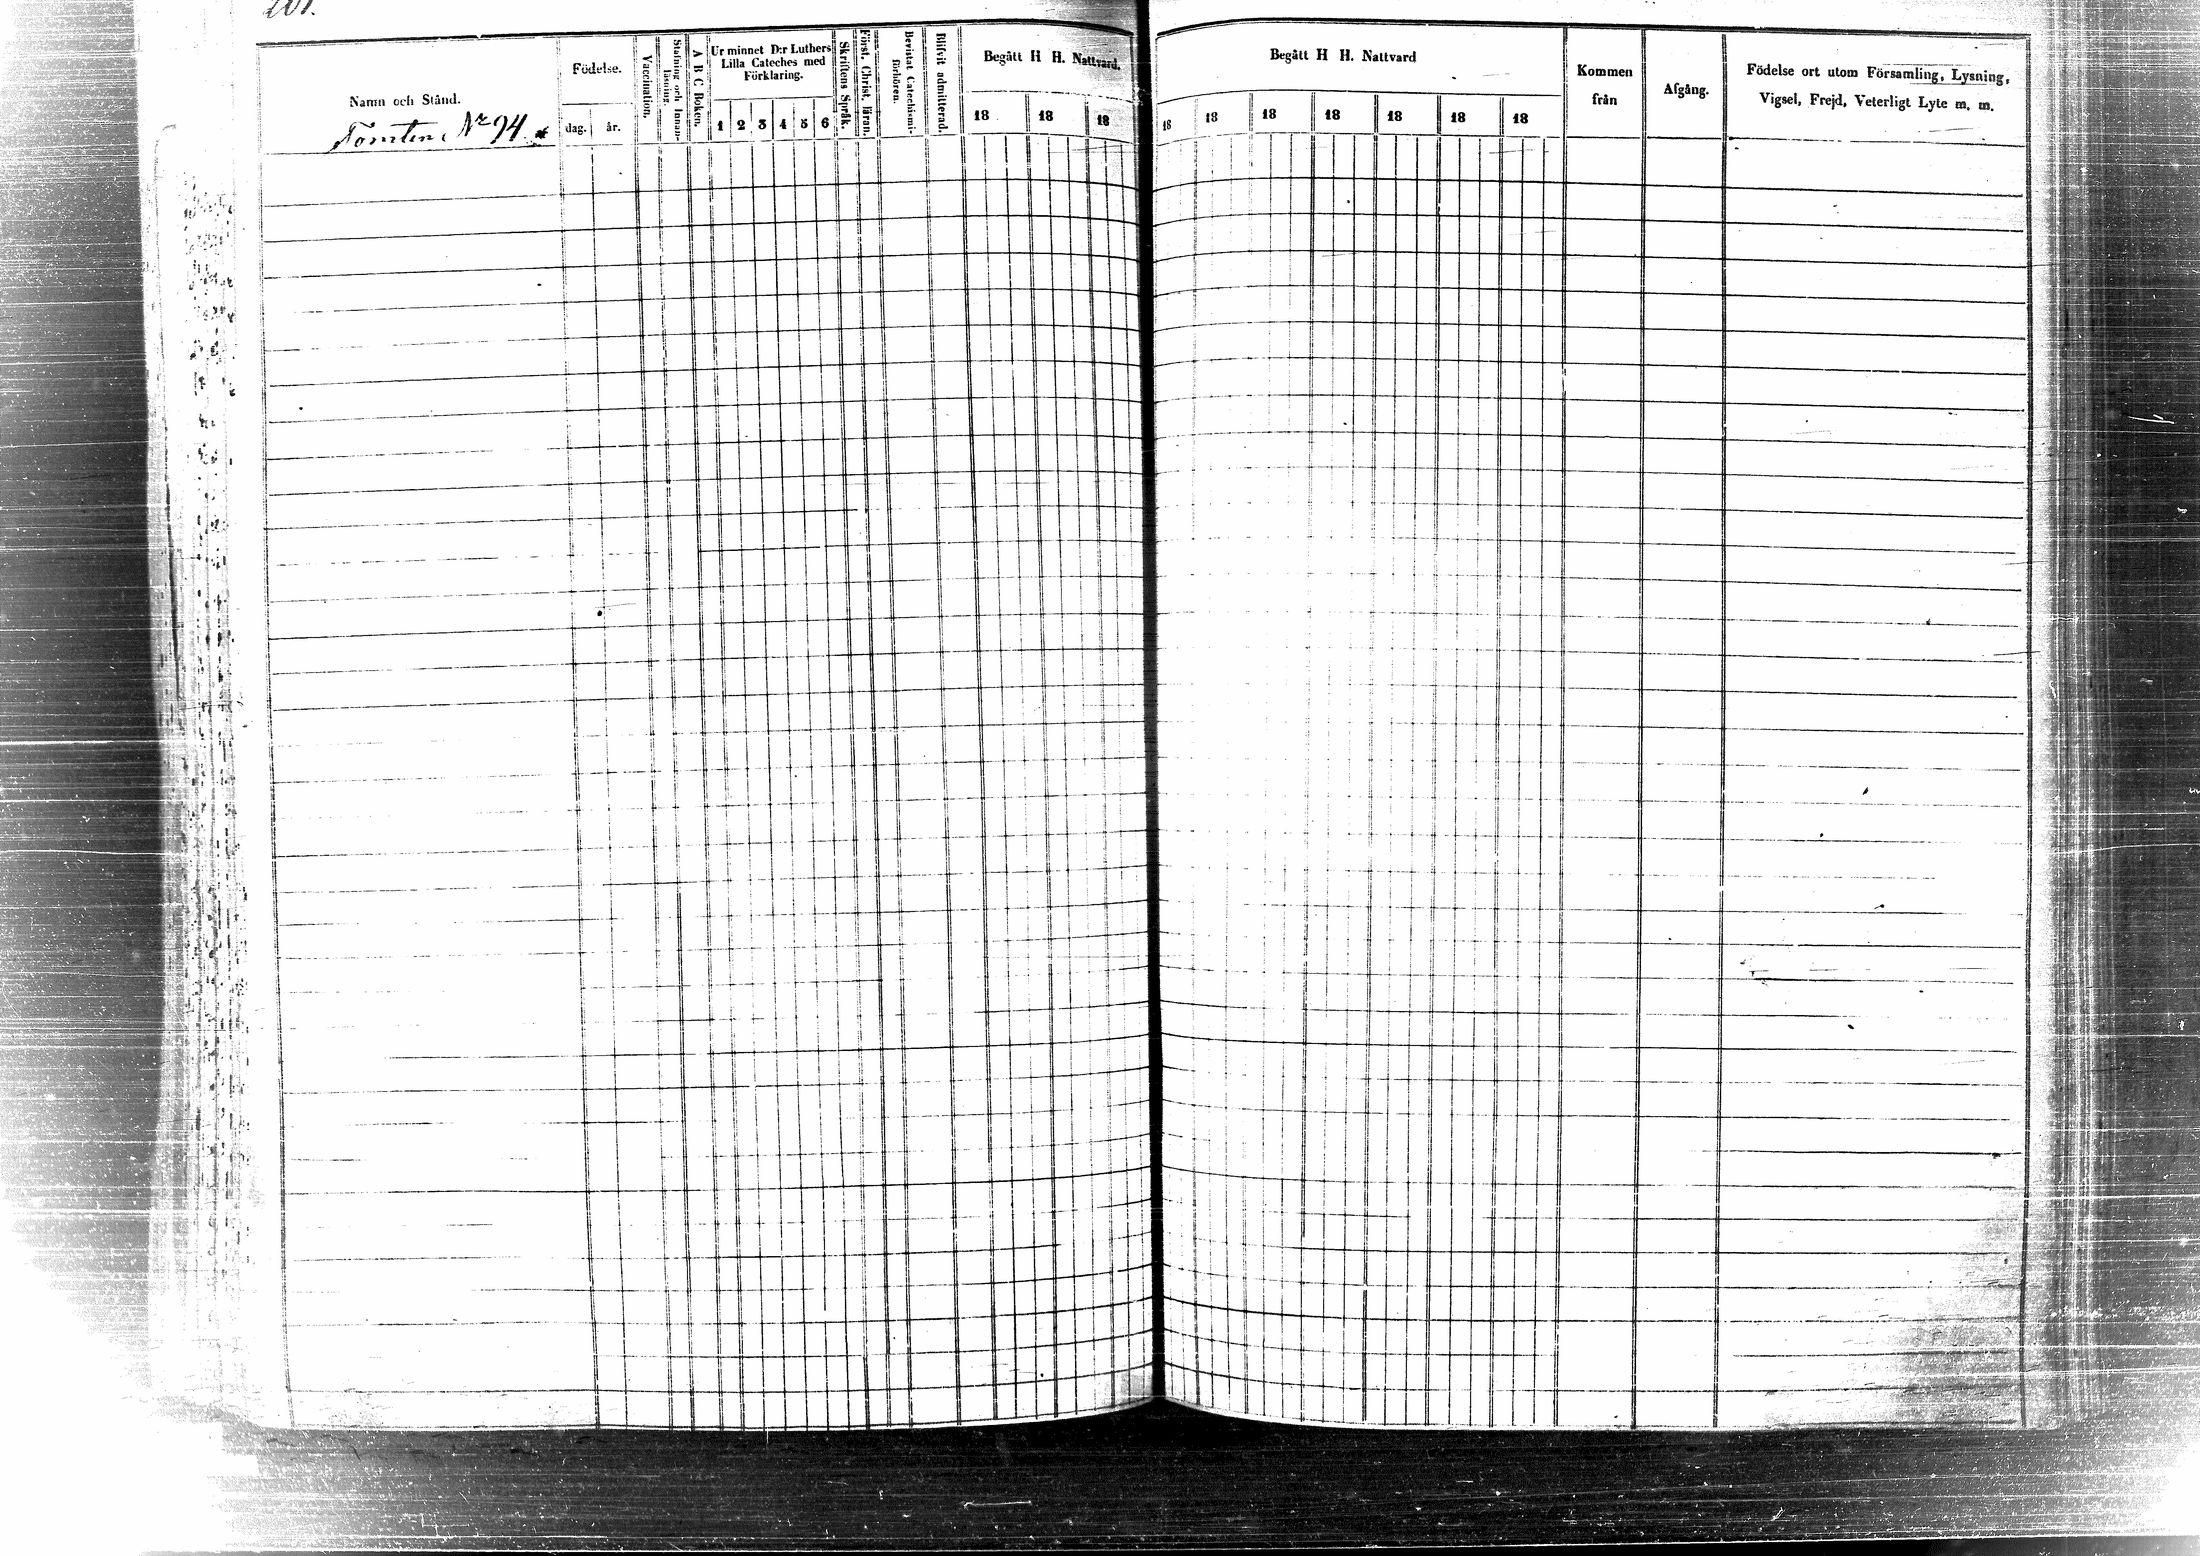 201.
Namn och Stånd.
Tomten Nr 94.
Födelse.
dag. år.
Vaccination.
Stafning och Innanläsning.
A B C Boken.
Ur minnet D:r Luthers
Lilla Cateches med
Förklaring.
1 2 3 4 5 6
Skriftens Språk.
Först. Christ. läran.
Bevistat Catechismi-
förhören.
Blifvit admitterad.
Begått H H. Nattvard.
18 18 18
Begått H H. Nattvard
18 18 18 18 18 18 18
Kommen
från
Afgång.
Födelse ort utom Församling, Lysning,
Vigsel, Frejd, Veterligt Lyte m. m.